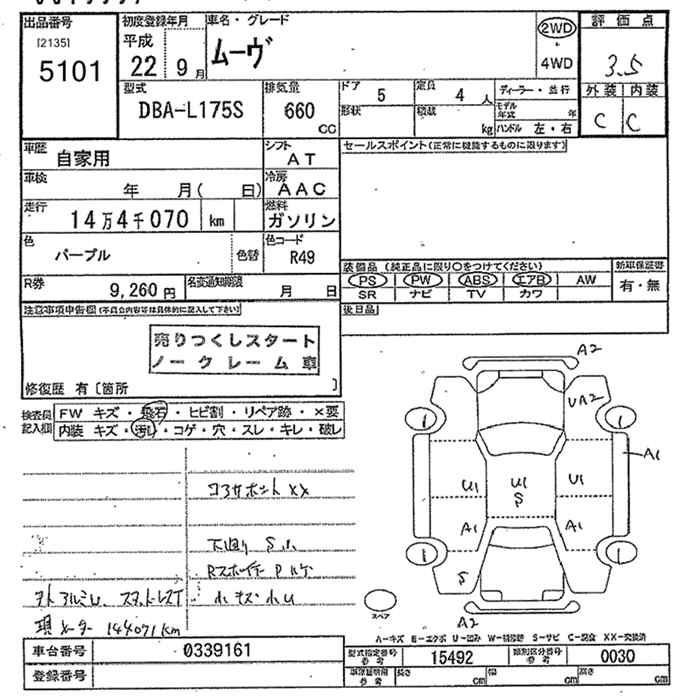 出品番号
[2135]
5101
初度登録年月
平成
22 9 月
車名・グレード
ムーヴ
2WD
・
4WD
評価点
3.5
外装 内装
C C
型式
DBA-L175S
排気量
660 CC
ドア 5
形状
定員 4 人
積載 kg
ディーラー・並行
モデル年式 年
ハンドル 左・右
車歴
自家用
シフト
AT
セールスポイント(正常に機能するものに限ります)
車検
年 月( 日)
冷房
AAC
走行
14万4千070 km
燃料
ガソリン
色
パープル
色替
色コード
R49
R券
9,260 円
名変通知期限
月 日
装備品 (純正品に限り○をつけてください)
PS PW ABS エアB AW
SR ナビ TV カワ
新車保証書
有・無
後日品
注意事項申告欄(不具合内容等は具体的に記入して下さい)
売りつくしスタート
ノークレーム車
修復歴 有〔箇所 〕
検査員記入欄
FW キズ・飛石・ヒビ割・リペア跡・×要
内装 キズ・汚れ・コゲ・穴・スレ・キレ・破レ
コアサポート XX
下廻り S小
Rスポイラー Pハゲ
外アルミU スタットレスT 小キズ・小U
現メーター 144071km
A2
UA2
A1
U1 U1 S U1
A1 A1
S
A2
スペア
A-キズ E-エクボ U-凹み W-補修跡 S-サビ C-腐食 XX-交換済
車台番号 0339161
登録番号
型式指定番号 参考 15492
類別区分番号 参考 0030
車庫証明用 参考 長さ cm 幅 cm 高さ cm